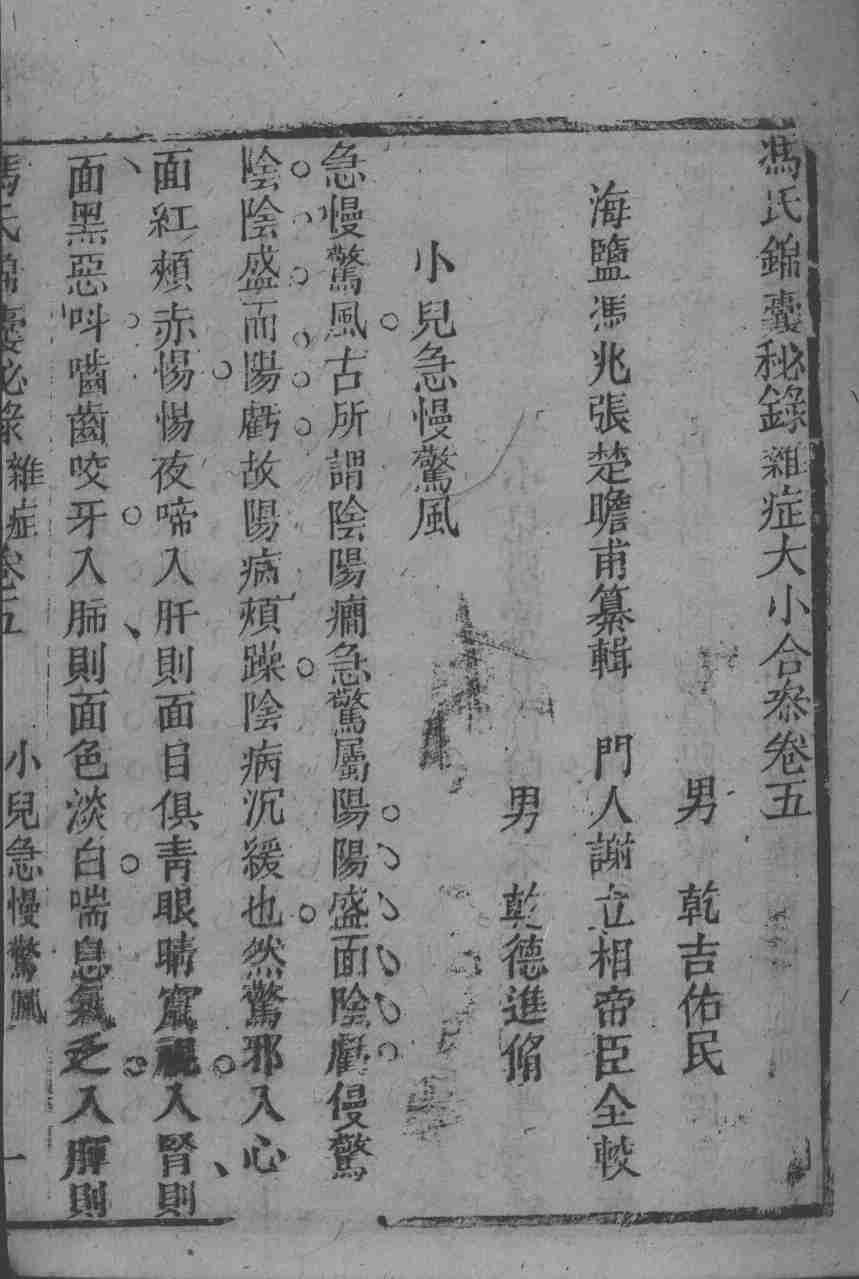 馮氏錦囊秘錄雜症大小合叅卷五
男 乾吉佑民
海鹽馮兆張楚瞻甫纂輯 門人謝立相帝臣仝較
男 乾德進脩
小兒急慢驚風
急慢驚風古所謂陰陽癇急驚屬陽陽盛面陰虧慢驚
陰陰盛而陽虧故陽病煩躁陰病沉緩也然驚邪入心
面紅頰赤惕惕夜啼入肝則面目俱靑眼睛竄視入腎則
面黑惡呌嚙齒咬牙入肺則面色淡白喘息氣乏入脾則
馮氏錦囊秘錄 雜症卷五 小兒急慢驚風 一